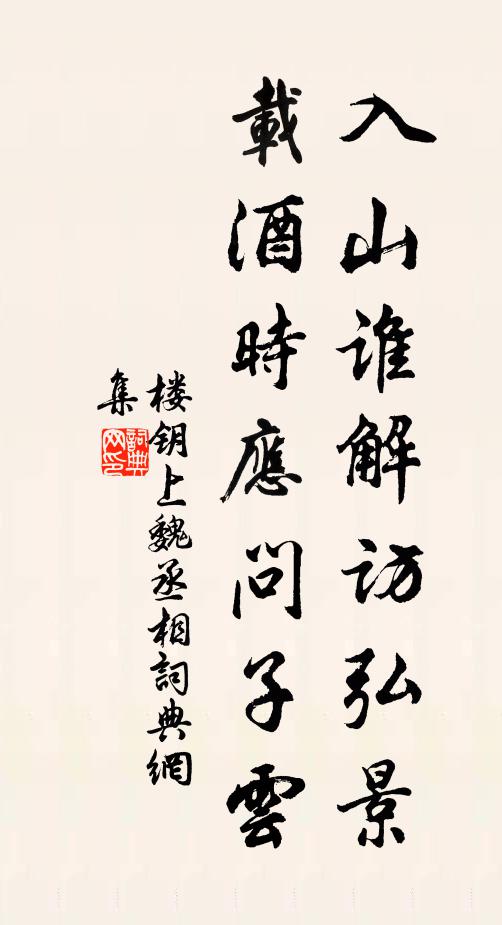 入山誰解訪弘景
載酒時應問子雲
楼钥上魏丞相詞典網
集
詞典網印